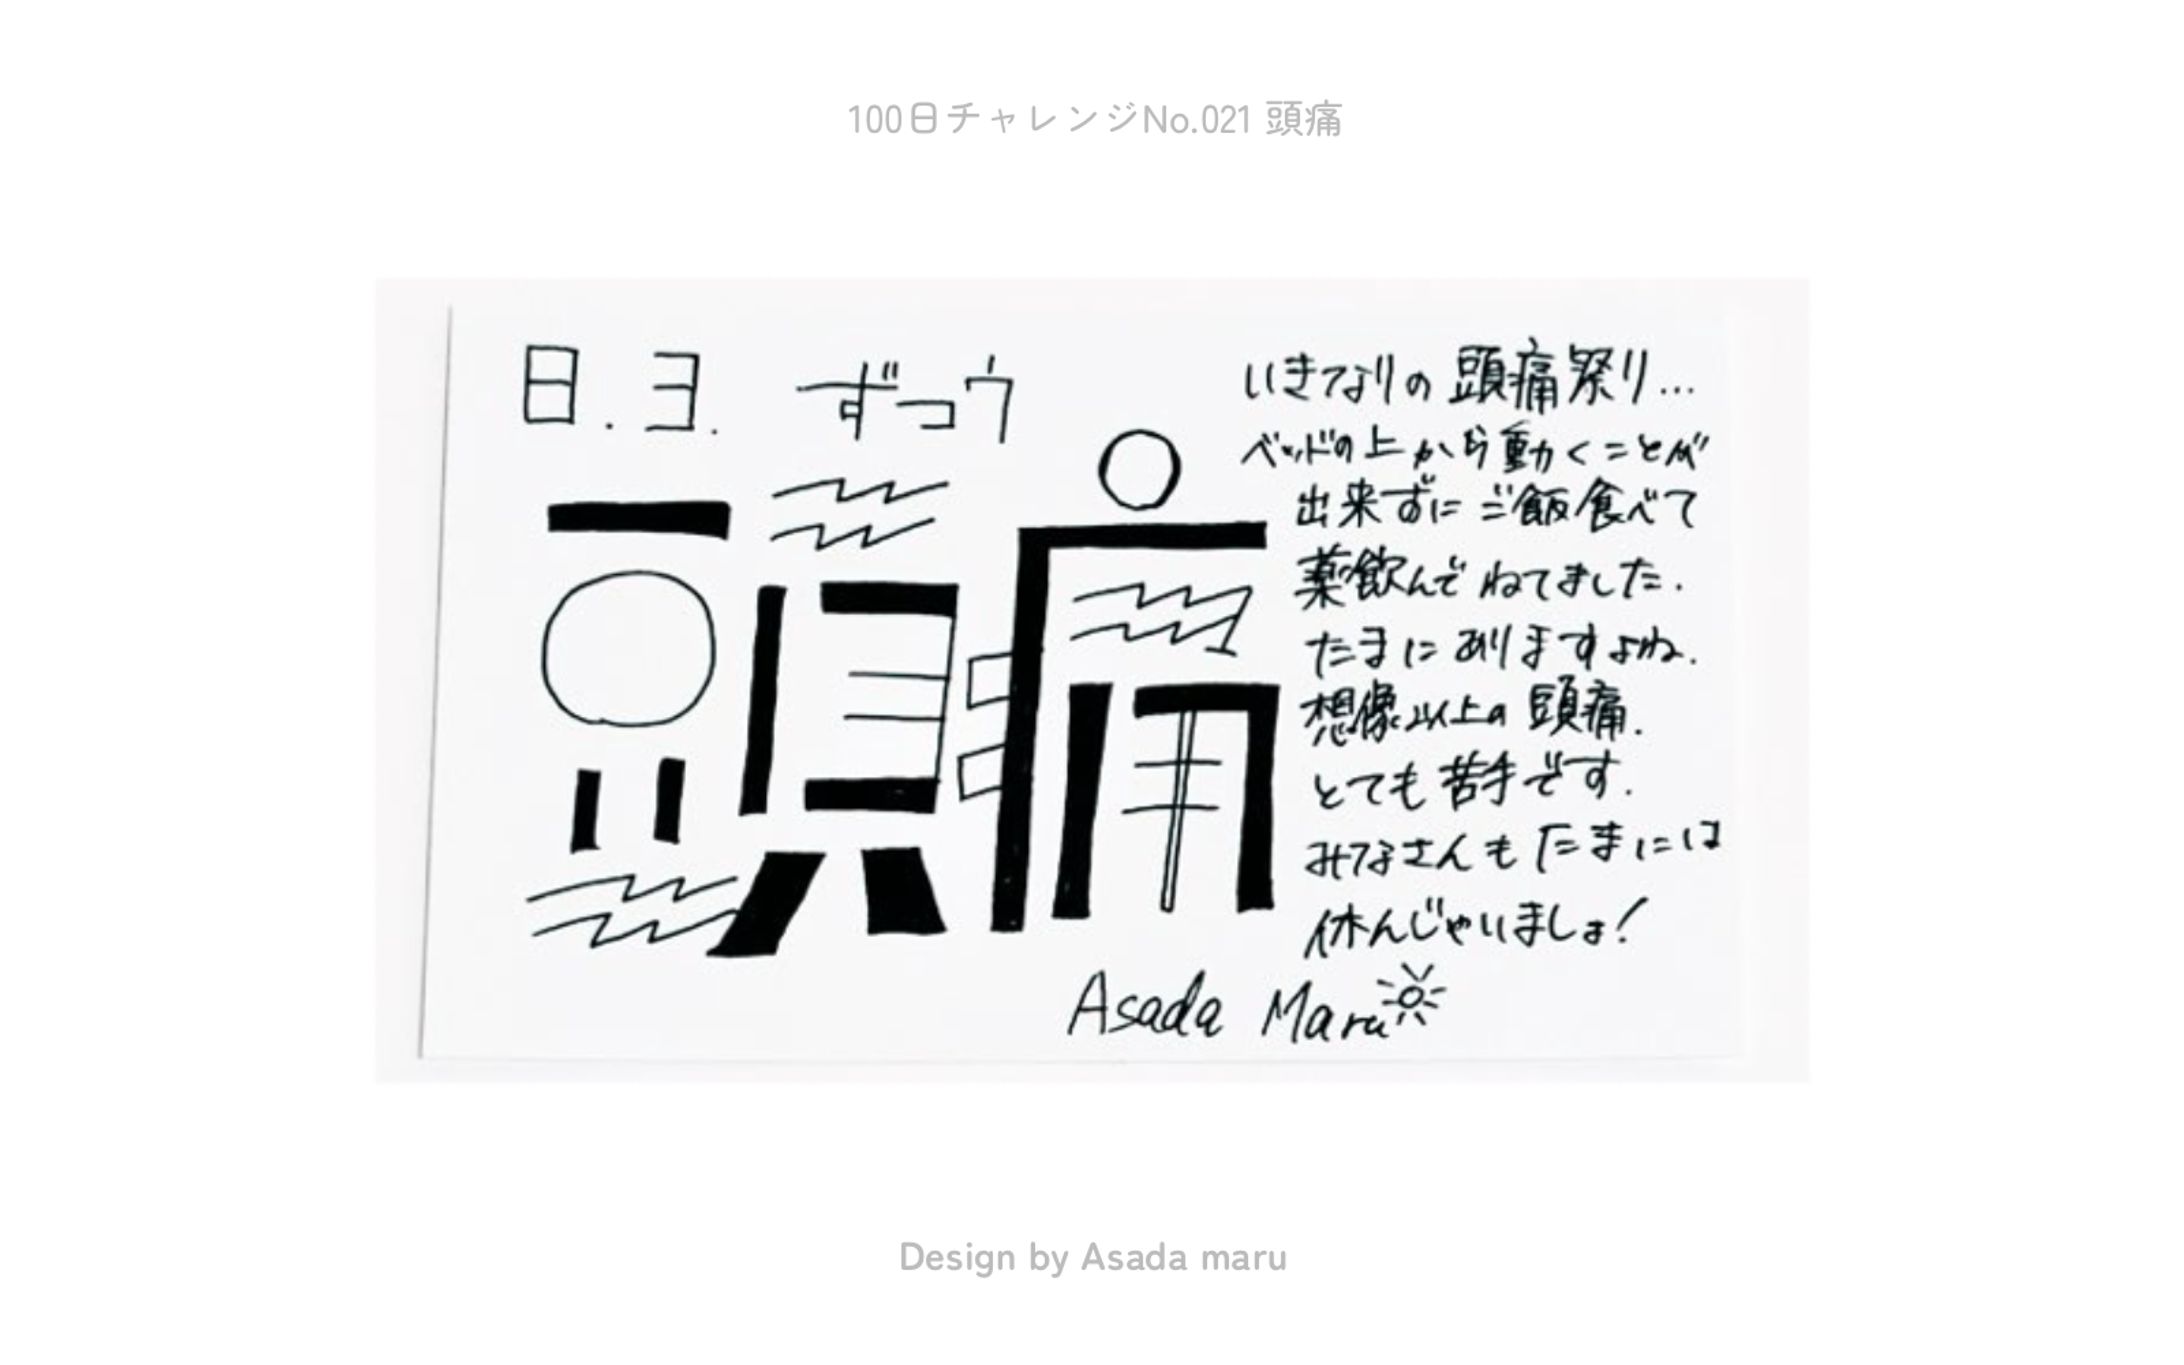 100日チャレンジNo.021 頭痛
日.ヨ. ずつう
頭痛
いきなりの頭痛祭り...
ベッドの上から動くことが
出来ずにご飯食べて
薬飲んでねてました.
たまにありますよね.
想像以上の頭痛.
とても苦手です.
みなさんもたまには
休んじゃいましょ!
Asada Maru
Design by Asada maru